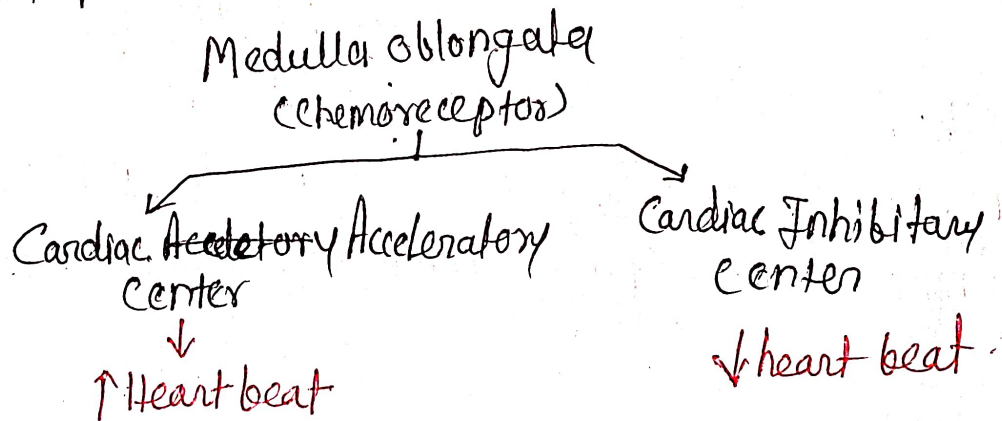 Medulla oblongata
(Chemoreceptor)
Cardiac Accletory Acceleratory
center
↓
↑ Heart beat
Cardiac Inhibitary
center
↓ heart beat.